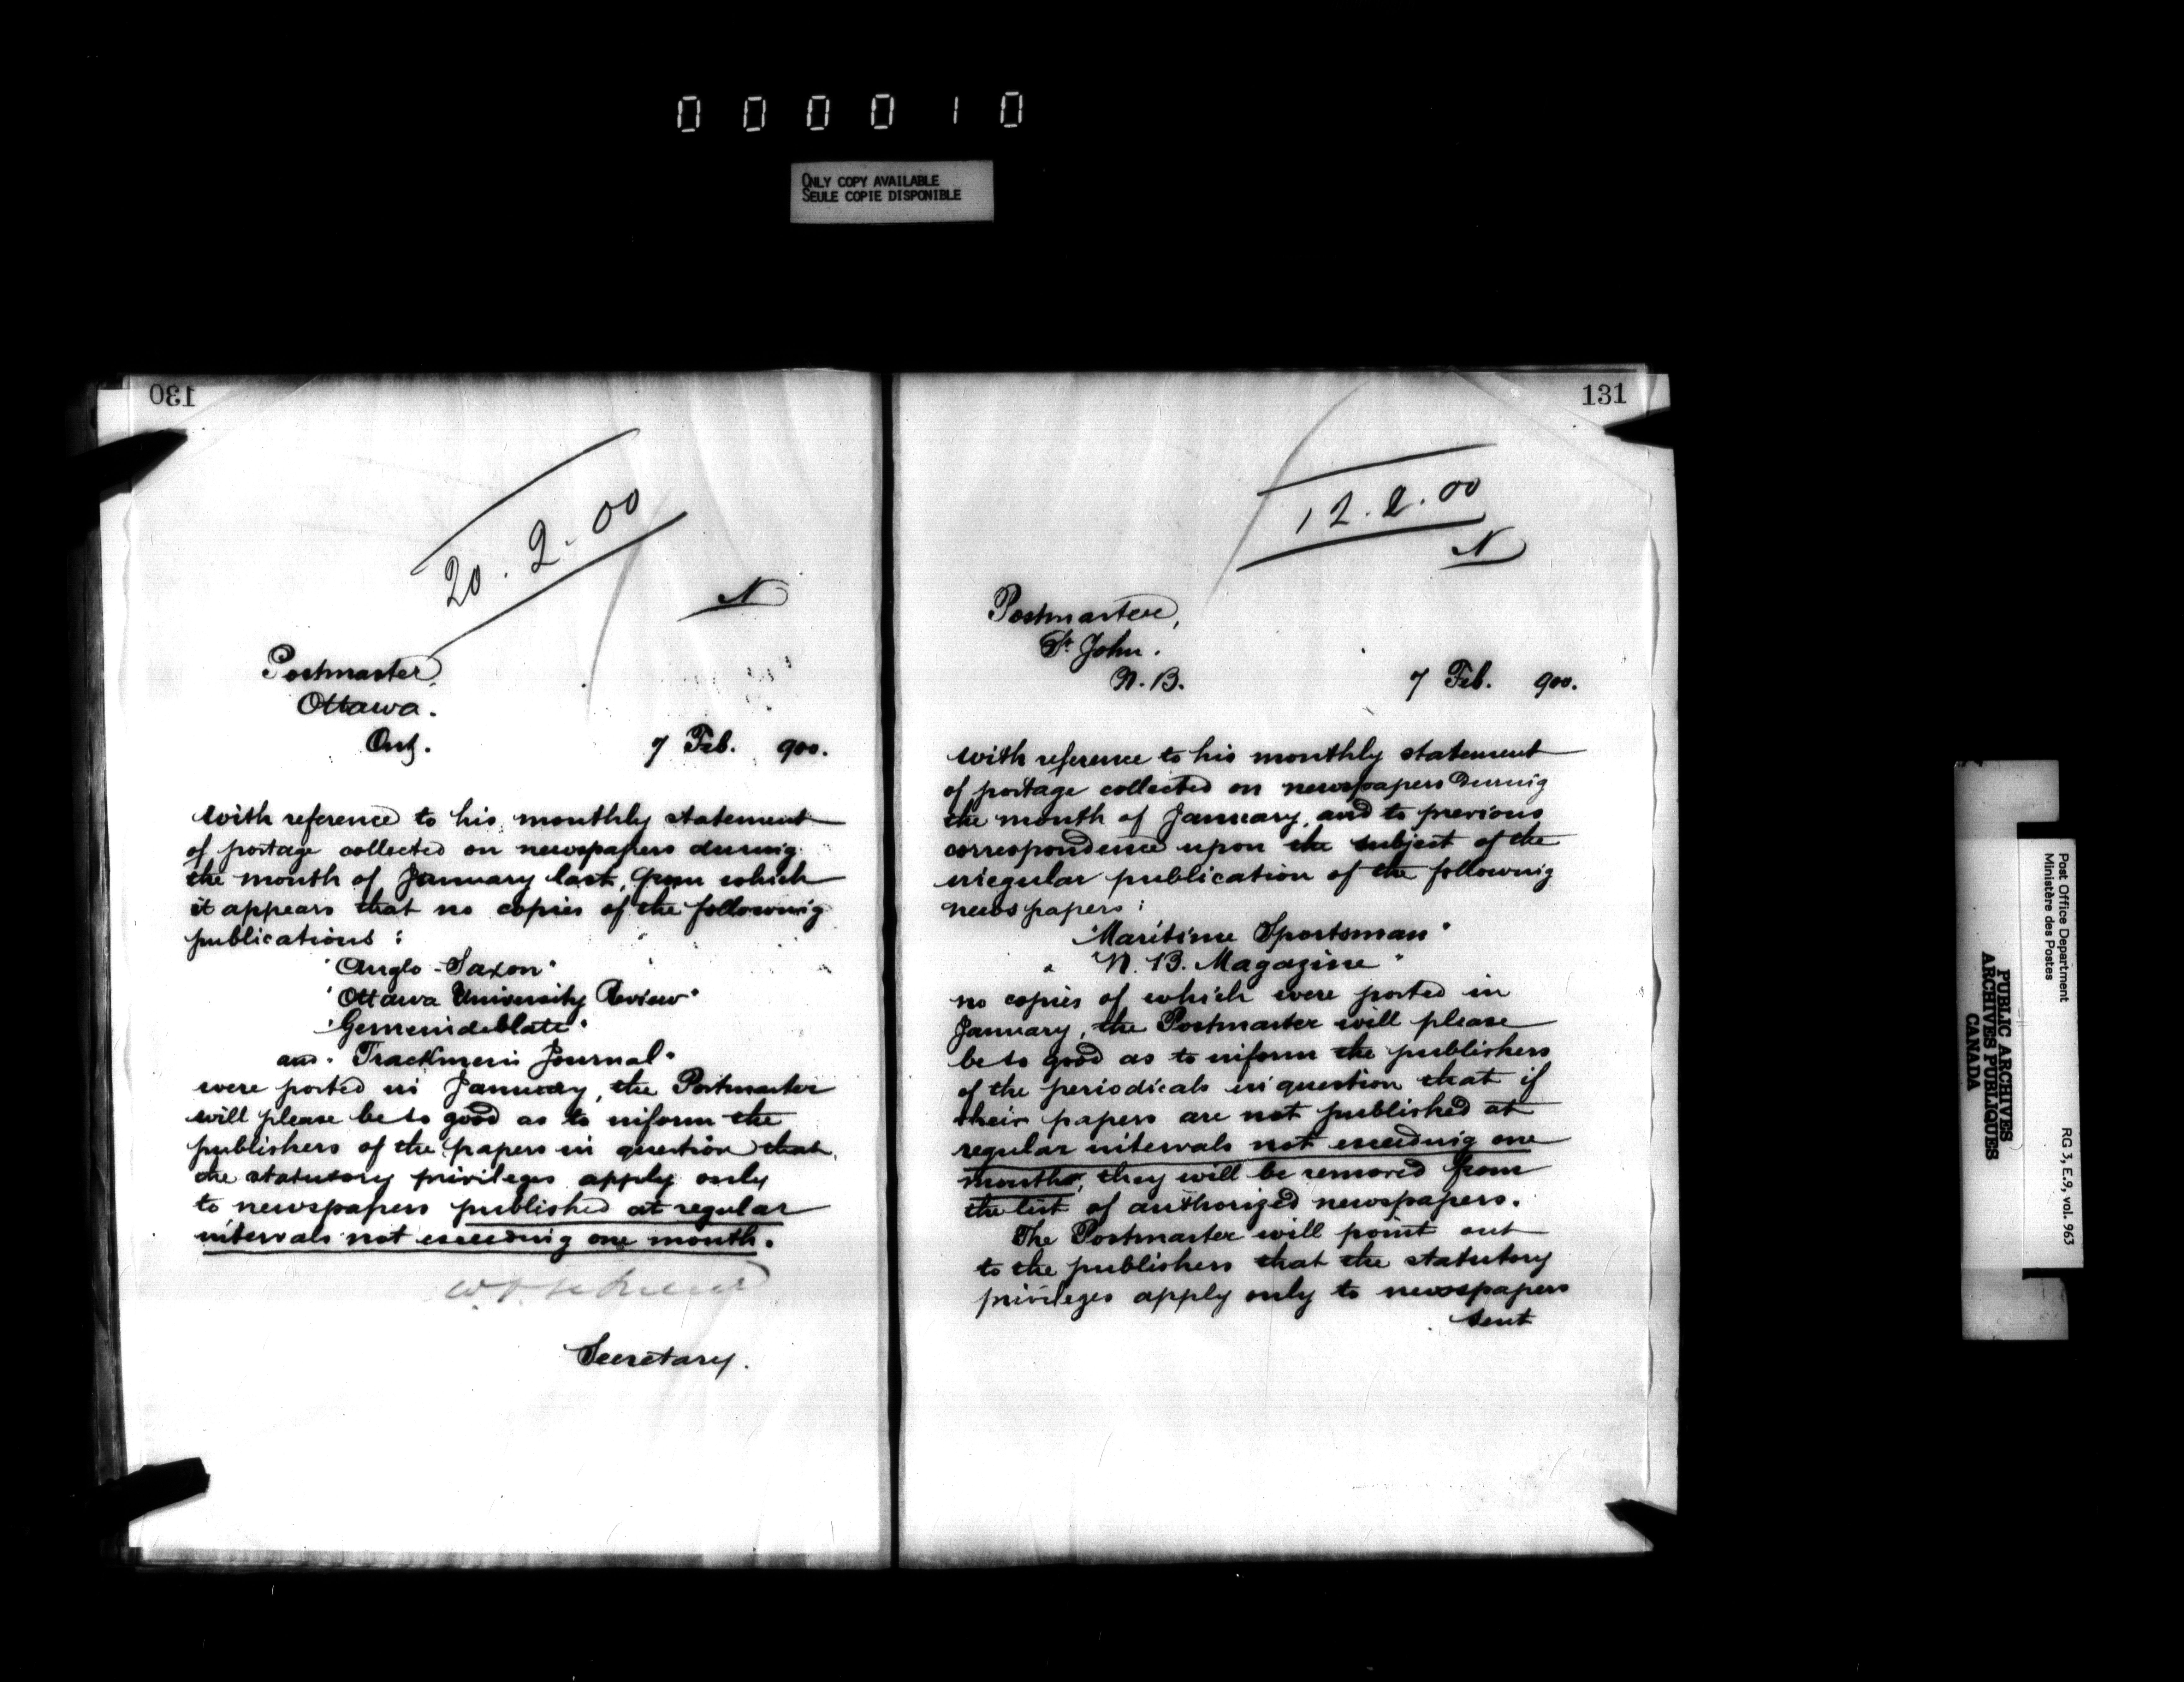 0 0 0 0 1 0
ONLY COPY AVAILABLE
SEULE COPIE DISPONIBLE
130
20.2.00
N
Postmaster,
Ottawa.
Ont.
7 Feb. 900.
With reference to his monthly statement
of postage collected on newspapers during
the month of January last, from which
it appears that no copies of the following
publications:
"Anglo-Saxon"
"Ottawa University Review"
"Gemeindeblatt"
and "Trackmen's Journal"
were posted in January, the Postmaster
will please be so good as to inform the
publishers of the papers in question that
the statutory privileges apply only
to newspapers published at regular
intervals not exceeding one month.
Secretary.
131
12.2.00
N
Postmaster,
St. John.
N.B.
7 Feb. 900.
With reference to his monthly statement
of postage collected on newspapers during
the month of January, and to previous
correspondence upon the subject of the
irregular publication of the following
newspapers:
"Maritime Sportsman"
"N.B. Magazine"
no copies of which were posted in
January, the Postmaster will please
be so good as to inform the publishers
of the periodicals in question that if
their papers are not published at
regular intervals not exceeding one
month, they will be removed from
the list of authorized newspapers.
The Postmaster will point out
to the publishers that the statutory
privileges apply only to newspapers
sent
Post Office Department
Ministère des Postes
RG 3, E.9, vol. 963
PUBLIC ARCHIVES
ARCHIVES PUBLIQUES
CANADA